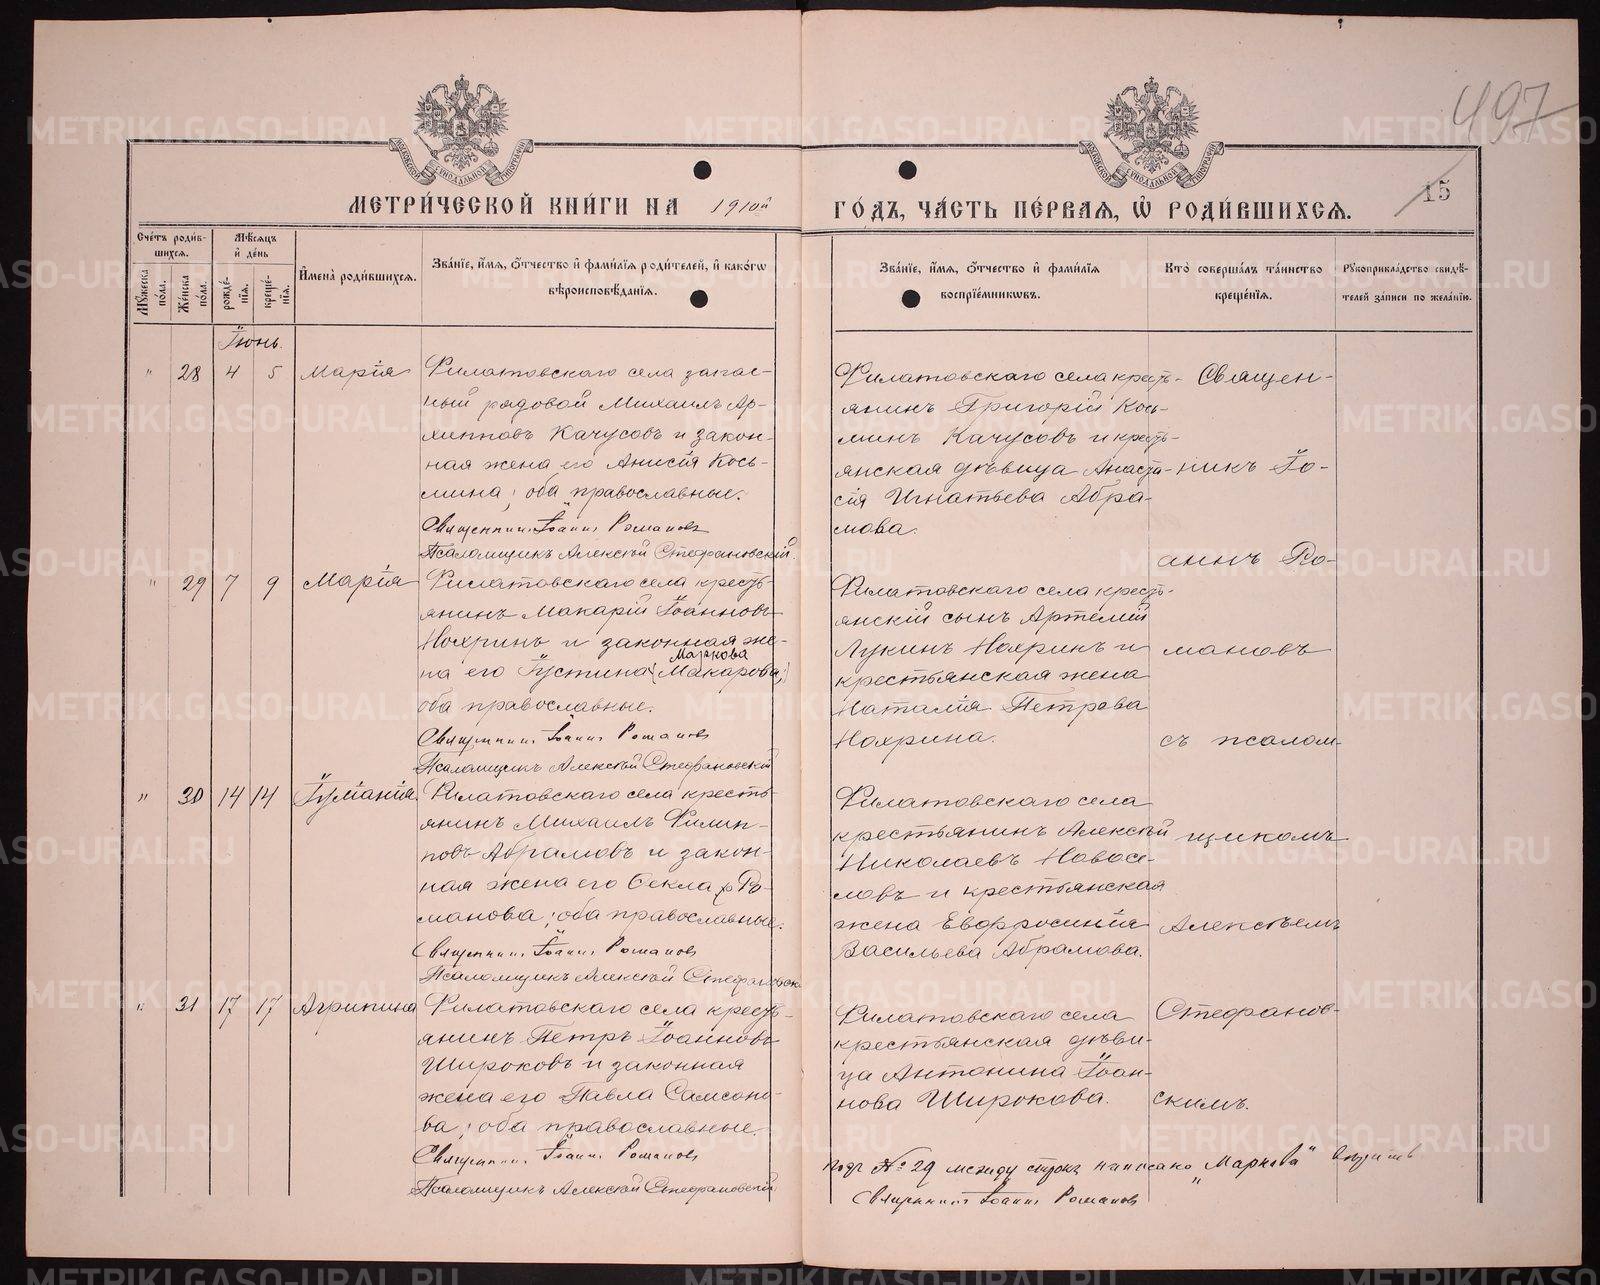 497
15
МОСКОВСКОЙ СѴНОДАЛЬНОЙ ТИПОГРАФІИ
МОСКОВСКОЙ СѴНОДАЛЬНОЙ ТИПОГРАФІИ
МЕТРИ́ЧЕСКОЙ КНИ́ГИ НА 1910й
ГО́ДЪ, ЧА́СТЬ ПЕ́РВАЯ, Ѽ РОДИ́ВШИХСЯ.
Сче́тъ роди́в-
шихся.
Мѣ́сяцъ
и҆ де́нь
Мꙋ́жеска по́ла.
Же́нска по́ла.
рожде́-
нія.
креще́-
нія.
И҆мена̀ роди́вшихся.
Зва́ніе, и҆́мя, ѻ҆́тчество и҆ фами́лія роди́телей, и҆ како́гѡ
вѣроисповѣ́данія.
Зва́ніе, и҆́мя, ѻ҆́тчество и҆ фами́лія
воспріе́мникѡвъ.
Кто̀ соверша́лъ та́инство
креще́нія.
Рꙋкоприкла́дство свидѣ́-
телей за́писи по жела́нію.
Іюнь.
" 28 4 5 Марія
Филатовскаго села запас-
ный рядовой Михаилъ Ар-
хиповъ Качусовъ и закон-
ная жена его Анисія Кось-
мина; оба православные.
Священник Іоаннъ Романовъ
Псаломщикъ Алексѣй Стефановскій.
Филатовскаго села кресть-
янинъ Григорій Кось-
минъ Качусовъ и кресть-
янская дѣвица Анаста-
сія Игнатьева Абра-
мова.
" 29 7 9 Марія
Филатовскаго села кресть-
янинъ Макарій Іоанновъ
Нохринъ и законная же-
Маркова
на его Іустина (Макарова;)
оба православные.
Священник Іоаннъ Романовъ
Псаломщикъ Алексѣй Стефановскій
Филатовскаго села кресть-
янскій сынъ Артемій
Лукинъ Нохринъ и
крестьянская жена
Наталія Петрова
Нохрина.
" 30 14 14 Іуліанія
Филатовскаго села кресть-
янинъ Михаилъ Филип-
повъ Абрамовъ и закон-
ная жена его Ѳекла Ро-
манова; оба православные.
Священник Іоаннъ Романовъ
Псаломщикъ Алексѣй Стефановск
Филатовскаго села
крестьянинъ Алексѣй
Николаевъ Новосе-
ловъ и крестьянская
жена Евфросинія
Васильева Абрамова.
" 31 17 17 Агрипина
Филатовскаго села кресть-
янинъ Петръ Іоанновъ
Широковъ и законная
жена его Павла Самсоно-
ва; оба православные.
Священник Іоаннъ Романовъ
Псаломщикъ Алексѣй Стефановскій
Филатовскаго села
крестьянская дѣви-
ца Антонина Іоан-
нова Широкова.
Священ-
никъ Іо-
аннъ Ро-
мановъ
съ псалом-
щикомъ
Алексѣемъ
Стефанов-
скимъ.
подъ №29 между строк написано „Маркова"
Священник Іоаннъ Романовъ
METRIKI.GASO-URAL.RU